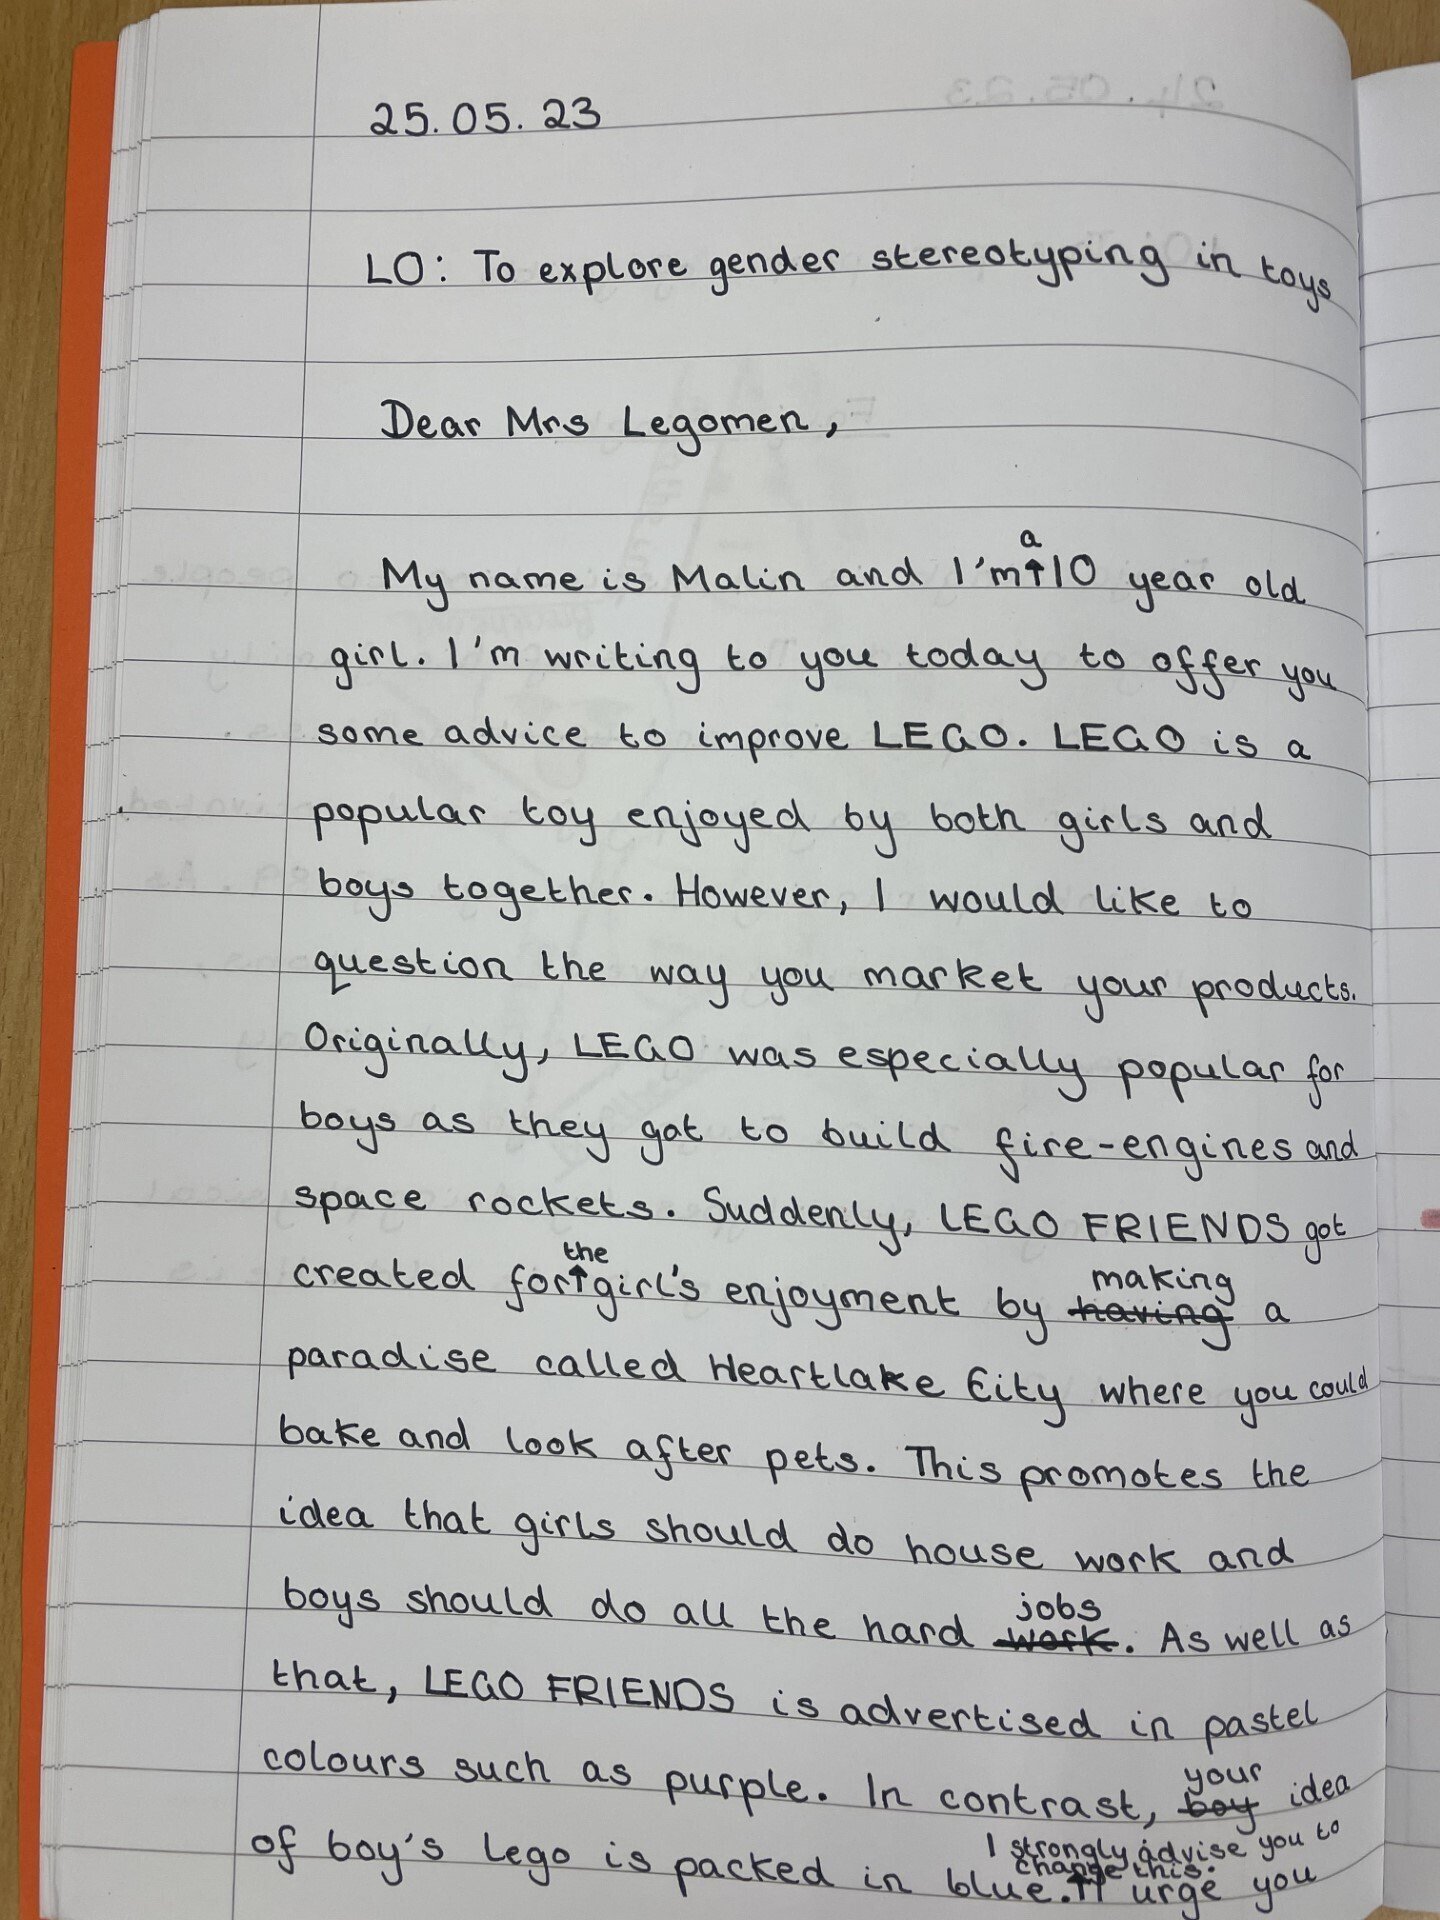 25.05.23
LO: To explore gender stereotyping in toys
Dear Mrs Legomen,
a
My name is Malin and I'm↑10 year old
girl. I'm writing to you today to offer you
some advice to improve LEGO. LEGO is a
popular toy enjoyed by both girls and
boys together. However, I would like to
question the way you market your products.
Originally, LEGO was especially popular for
boys as they got to build fire-engines and
space rockets. Suddenly, LEGO FRIENDS got
the making
created for↑girl's enjoyment by having a
paradise called Heartlake City where you could
bake and look after pets. This promotes the
idea that girls should do house work and
jobs
boys should do all the hard work. As well as
that, LEGO FRIENDS is advertised in pastel
your
colours such as purple. In contrast, boy idea
I strongly advise you to
change this.
of boy's Lego is packed in blue.↑I urge you